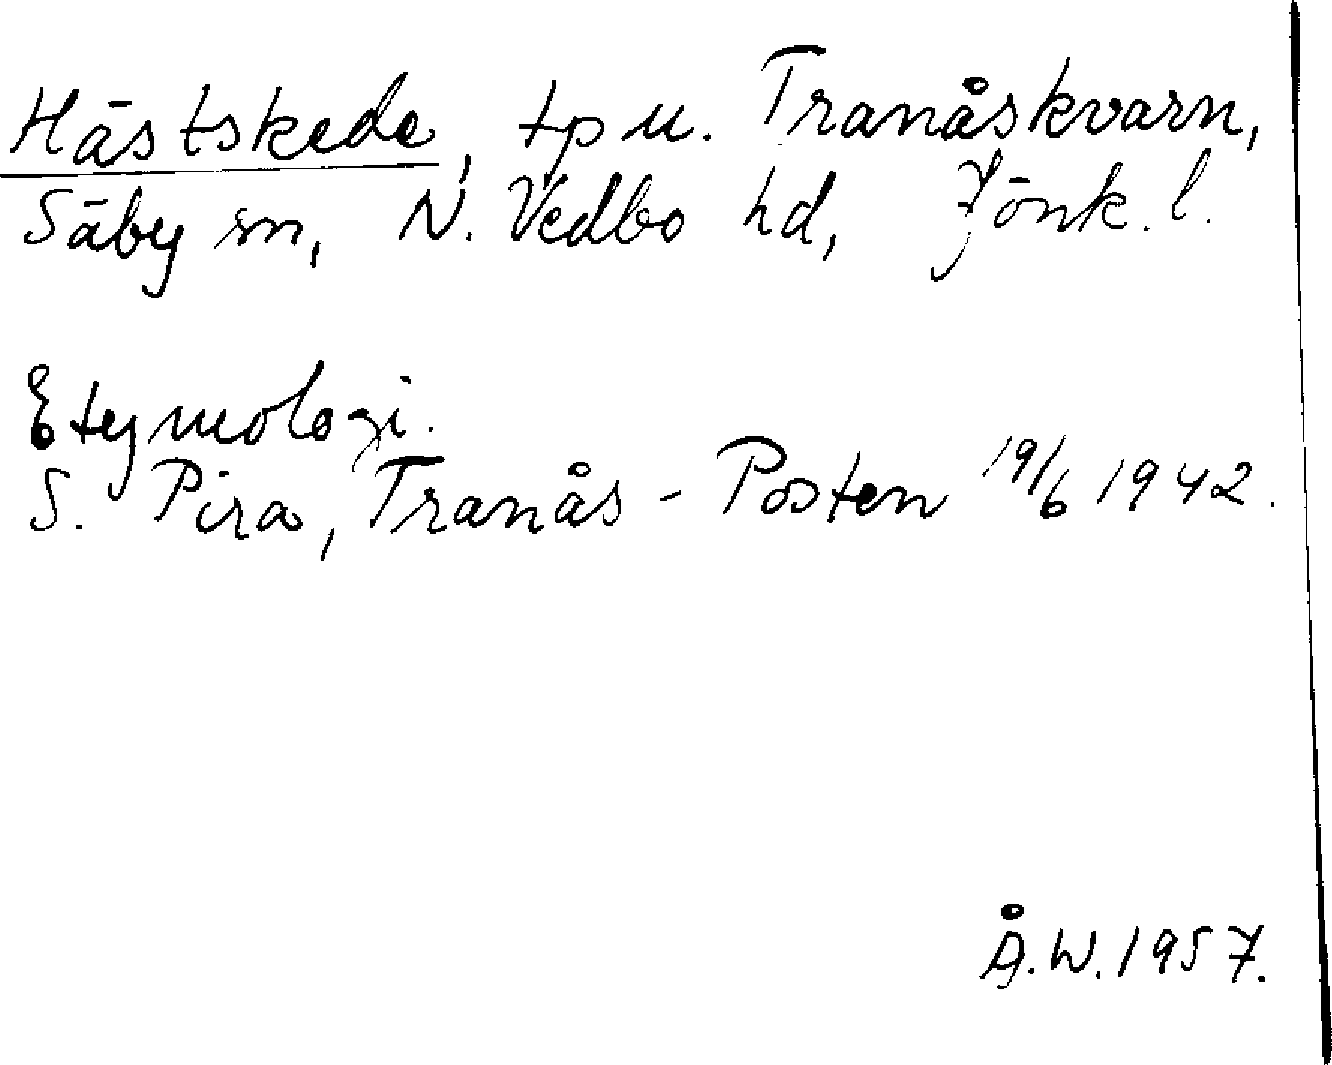 Hästskede, tp u. Tranåskvarn,
Säby sn, N. Vedbo hd, Jönk. l.
Etymologi.
S. Pira, Tranås-Posten 19/6 1942.
Å.W. 1957.